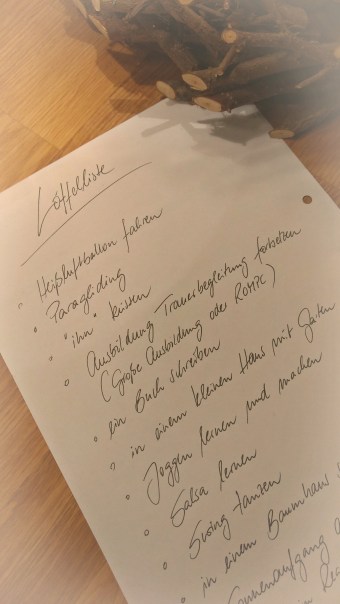 Löffelliste
◦ Heißluftballon fahren
◦ Paragliding
◦ "ihn" küssen
◦ Ausbildung Trauerbegleitung fortsetzen
(Große Ausbildung oder ROMPC)
◦ ein Buch schreiben
◦ in einem kleinen Haus mit Garten
◦ Joggen lernen und machen
◦ Salsa lernen
◦ Swing tanzen
◦ in einem Baumhaus
Sonnenaufgang